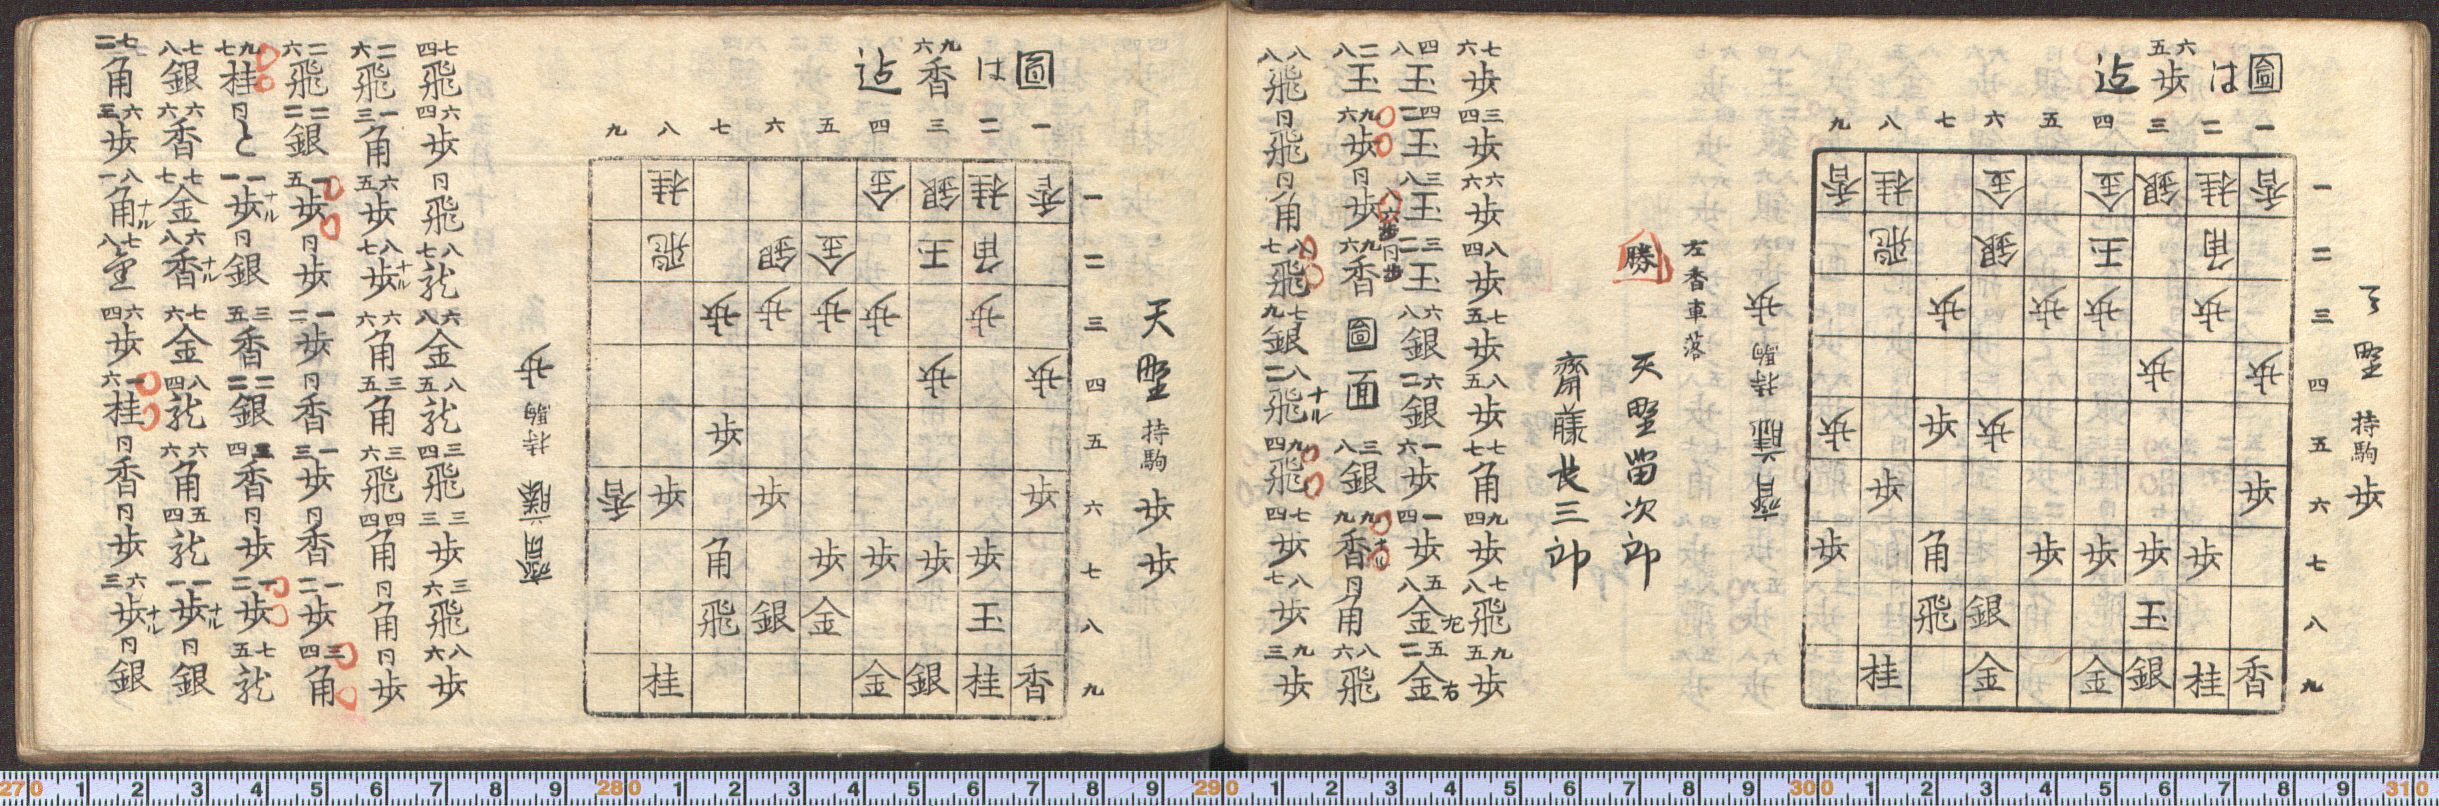 圖は
六五歩
迄
天野 持駒 歩
九 八 七 六 五 四 三 二 一
香 桂 金 金 銀 桂 香 一
飛 銀 玉 角 二
歩 歩 歩 歩 三
歩 歩 四
歩 歩 歩 五
歩 歩 六
歩 角 歩 歩 歩 歩 七
飛 銀 玉 八
桂 金 金 銀 桂 香 九
齋藤 持駒 歩
左香車落
勝 天野留次郎
齋藤長三郎
七六歩 三四歩 六六歩 八四歩 七五歩 八五歩 七七角 九四歩 七八飛 九五歩
四八玉 四二玉 三八玉 三二玉 六八銀 六二銀 一六歩 一四歩 五八金左 五二金右
二八玉 九六歩 同歩 八六歩 同歩 九六香 圖面 三八銀 九九香ナル 同角 八六飛
八八飛 同飛 同角 八七飛 七九銀 八二飛ナル 九四飛 七四歩 八七歩 九三歩
圖は
九六香
迄
天野 持駒 歩歩
九 八 七 六 五 四 三 二 一
桂 金 銀 桂 香 一
飛 銀 金 玉 角 二
歩 歩 歩 歩 歩 三
歩 歩 四
歩 五
香 歩 歩 歩 六
角 歩 歩 歩 歩 七
飛 銀 金 玉 八
桂 金 銀 桂 香 九
齋藤 持駒 歩
七四飛 六四歩 同飛 八七龍 六八金 八五龍 三四飛 三三歩 三六飛 八六歩
二六飛 一三角 六五歩 八七歩ナル 六六角 三五角 三六飛 四四角 同角 同歩
二六飛 二二銀 一五歩 同歩 一二歩 同香 一三歩 同香 一二歩 三四角
九七桂 同と 一一歩ナル 同銀 三五香 二二銀 三四香 同歩 一二歩 七五龍
七八銀 六六香 七七金 六八香ナル 七六金 八四龍 六六角 五四龍 一一歩ナル 同銀
七二角 六三歩 八一角ナル 七八 六四歩 一六桂 同香 同歩 六三歩ナル 同銀
270 1 2 3 4 5 6 7 8 9 280 1 2 3 4 5 6 7 8 9 290 1 2 3 4 5 6 7 8 9 300 1 2 3 4 5 6 7 8 9 310